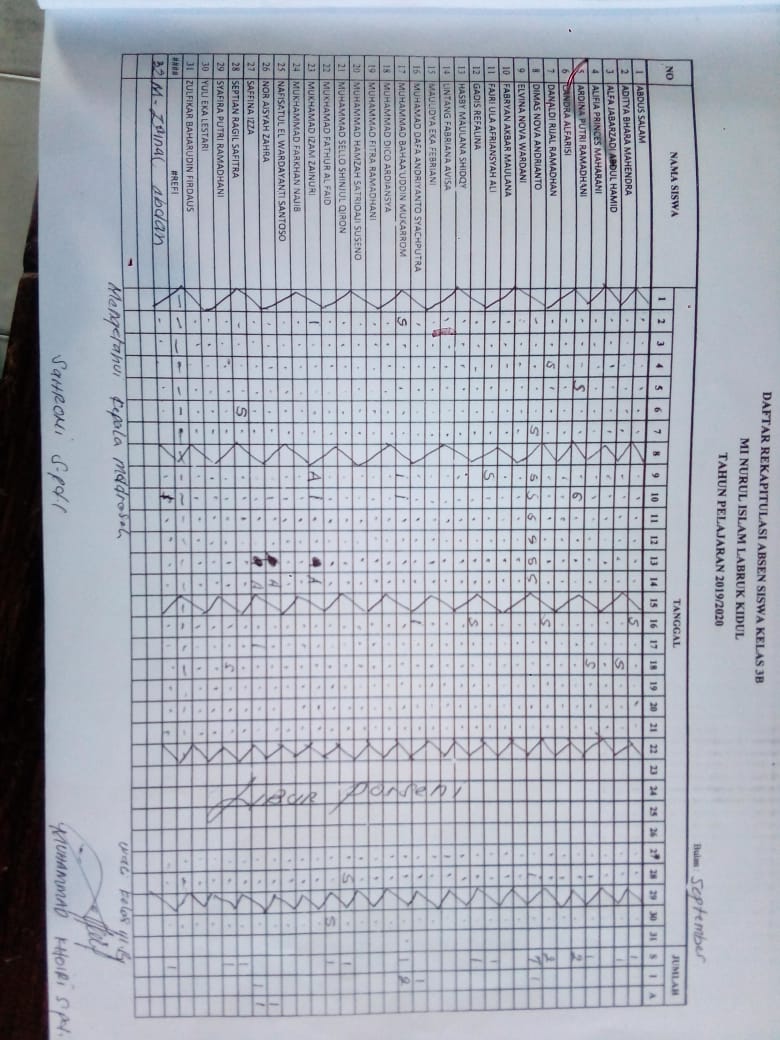 DAFTAR REKAPITULASI ABSEN SISWA KELAS 3B
MI NURUL ISLAM LABRUK KIDUL
TAHUN PELAJARAN 2019/2020
Bulan September
NO NAMA SISWA TANGGAL JUMLAH
1 2 3 4 5 6 7 8 9 10 11 12 13 14 15 16 17 18 19 20 21 22 23 24 25 26 27 28 29 30 31 S I A
1 ABDUS SALAM S
2 ADITYA BHARA MAHENDRA S 1
3 ALFA JABARZADI ABDUL HAMID
4 ALIFIA PRINCES MAHARANI S 1
5 ARDINA PUTRI RAMADHANI S 6 2
6 CANDRA ALFARISI
7 DANALDI RIJAL RAMADHAN S S 2
8 DIMAS NOVA ANDRIANTO S S S S S S S 7 1
9 ELVINA NOVA WARDANI
10 FABRYAN AKBAR MAULANA
11 FAJRI LULA AFRIANSYAH ALI S 1
12 GADIS REFALINA S 1
13 HASBY MAULANA SHIDQY
14 LINTANG FABRIANA AVISA
15 MAULIDYA EKA FEBRIANI
16 MUHAMAD DAFA ANDRIYANTO SYACHPUTRA 1 1
17 MUHAMMAD BAHAA'UDDIN MUKARROM S I I 1 2
18 MUHAMMAD DICO ARDIANSYA
19 MUHAMMAD FITRA RAMADHANI
20 MUHAMMAD HAMZAH SATRIOAJI SUSENO
21 MUHAMMAD SELLO SHINJUL QIRON S 1
22 MUKHAMAD FATHUR AL FAID S 1
23 MUKHAMAD IZAM ZAINURI I A I A
24 MUKHAMMAD FARKHAN NAJIB
25 NAFISATUL EL WARDAYANTI SANTOSO A 1
26 NOR AISYAH ZAHRA
27 SAFFINA DIZA A 1 1 1
28 SEPTIAN RAGIL SAFITRA S
29 SYAFIRA PUTRI RAMADHANI S 1
30 YULI EKA LESTARI
31 ZULFIKAR BAHARUDIN FIRDAUS
#### #REF!
32 M. Zainal Abdan
Libur Porseni
Mengetahui kepala madrasah
Wali kelas III.B
SAHRONI S.Pd.I
MUHAMMAD KHOIRI S.Pd.